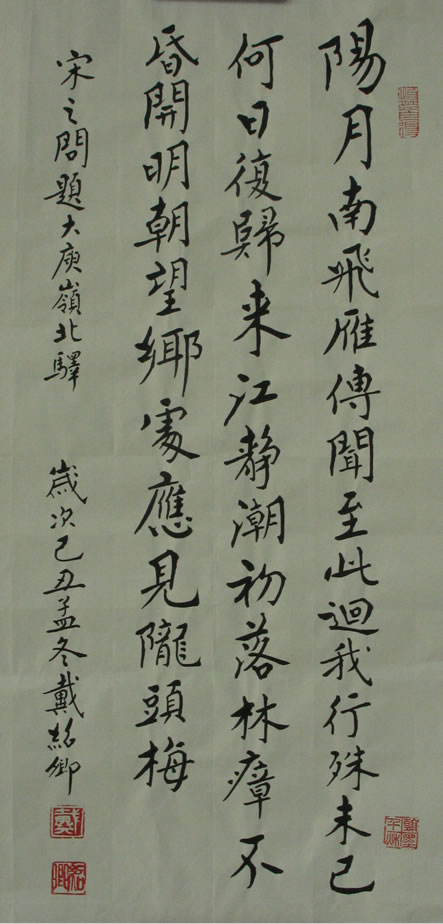 陽月南飛雁傳聞至此迴我行殊未已
何日復歸来江静潮初落林瘴不
昏開明朝望鄉處應見隴頭梅
宋之問題大庾嶺北驛
歲次己丑孟冬戴紹卿